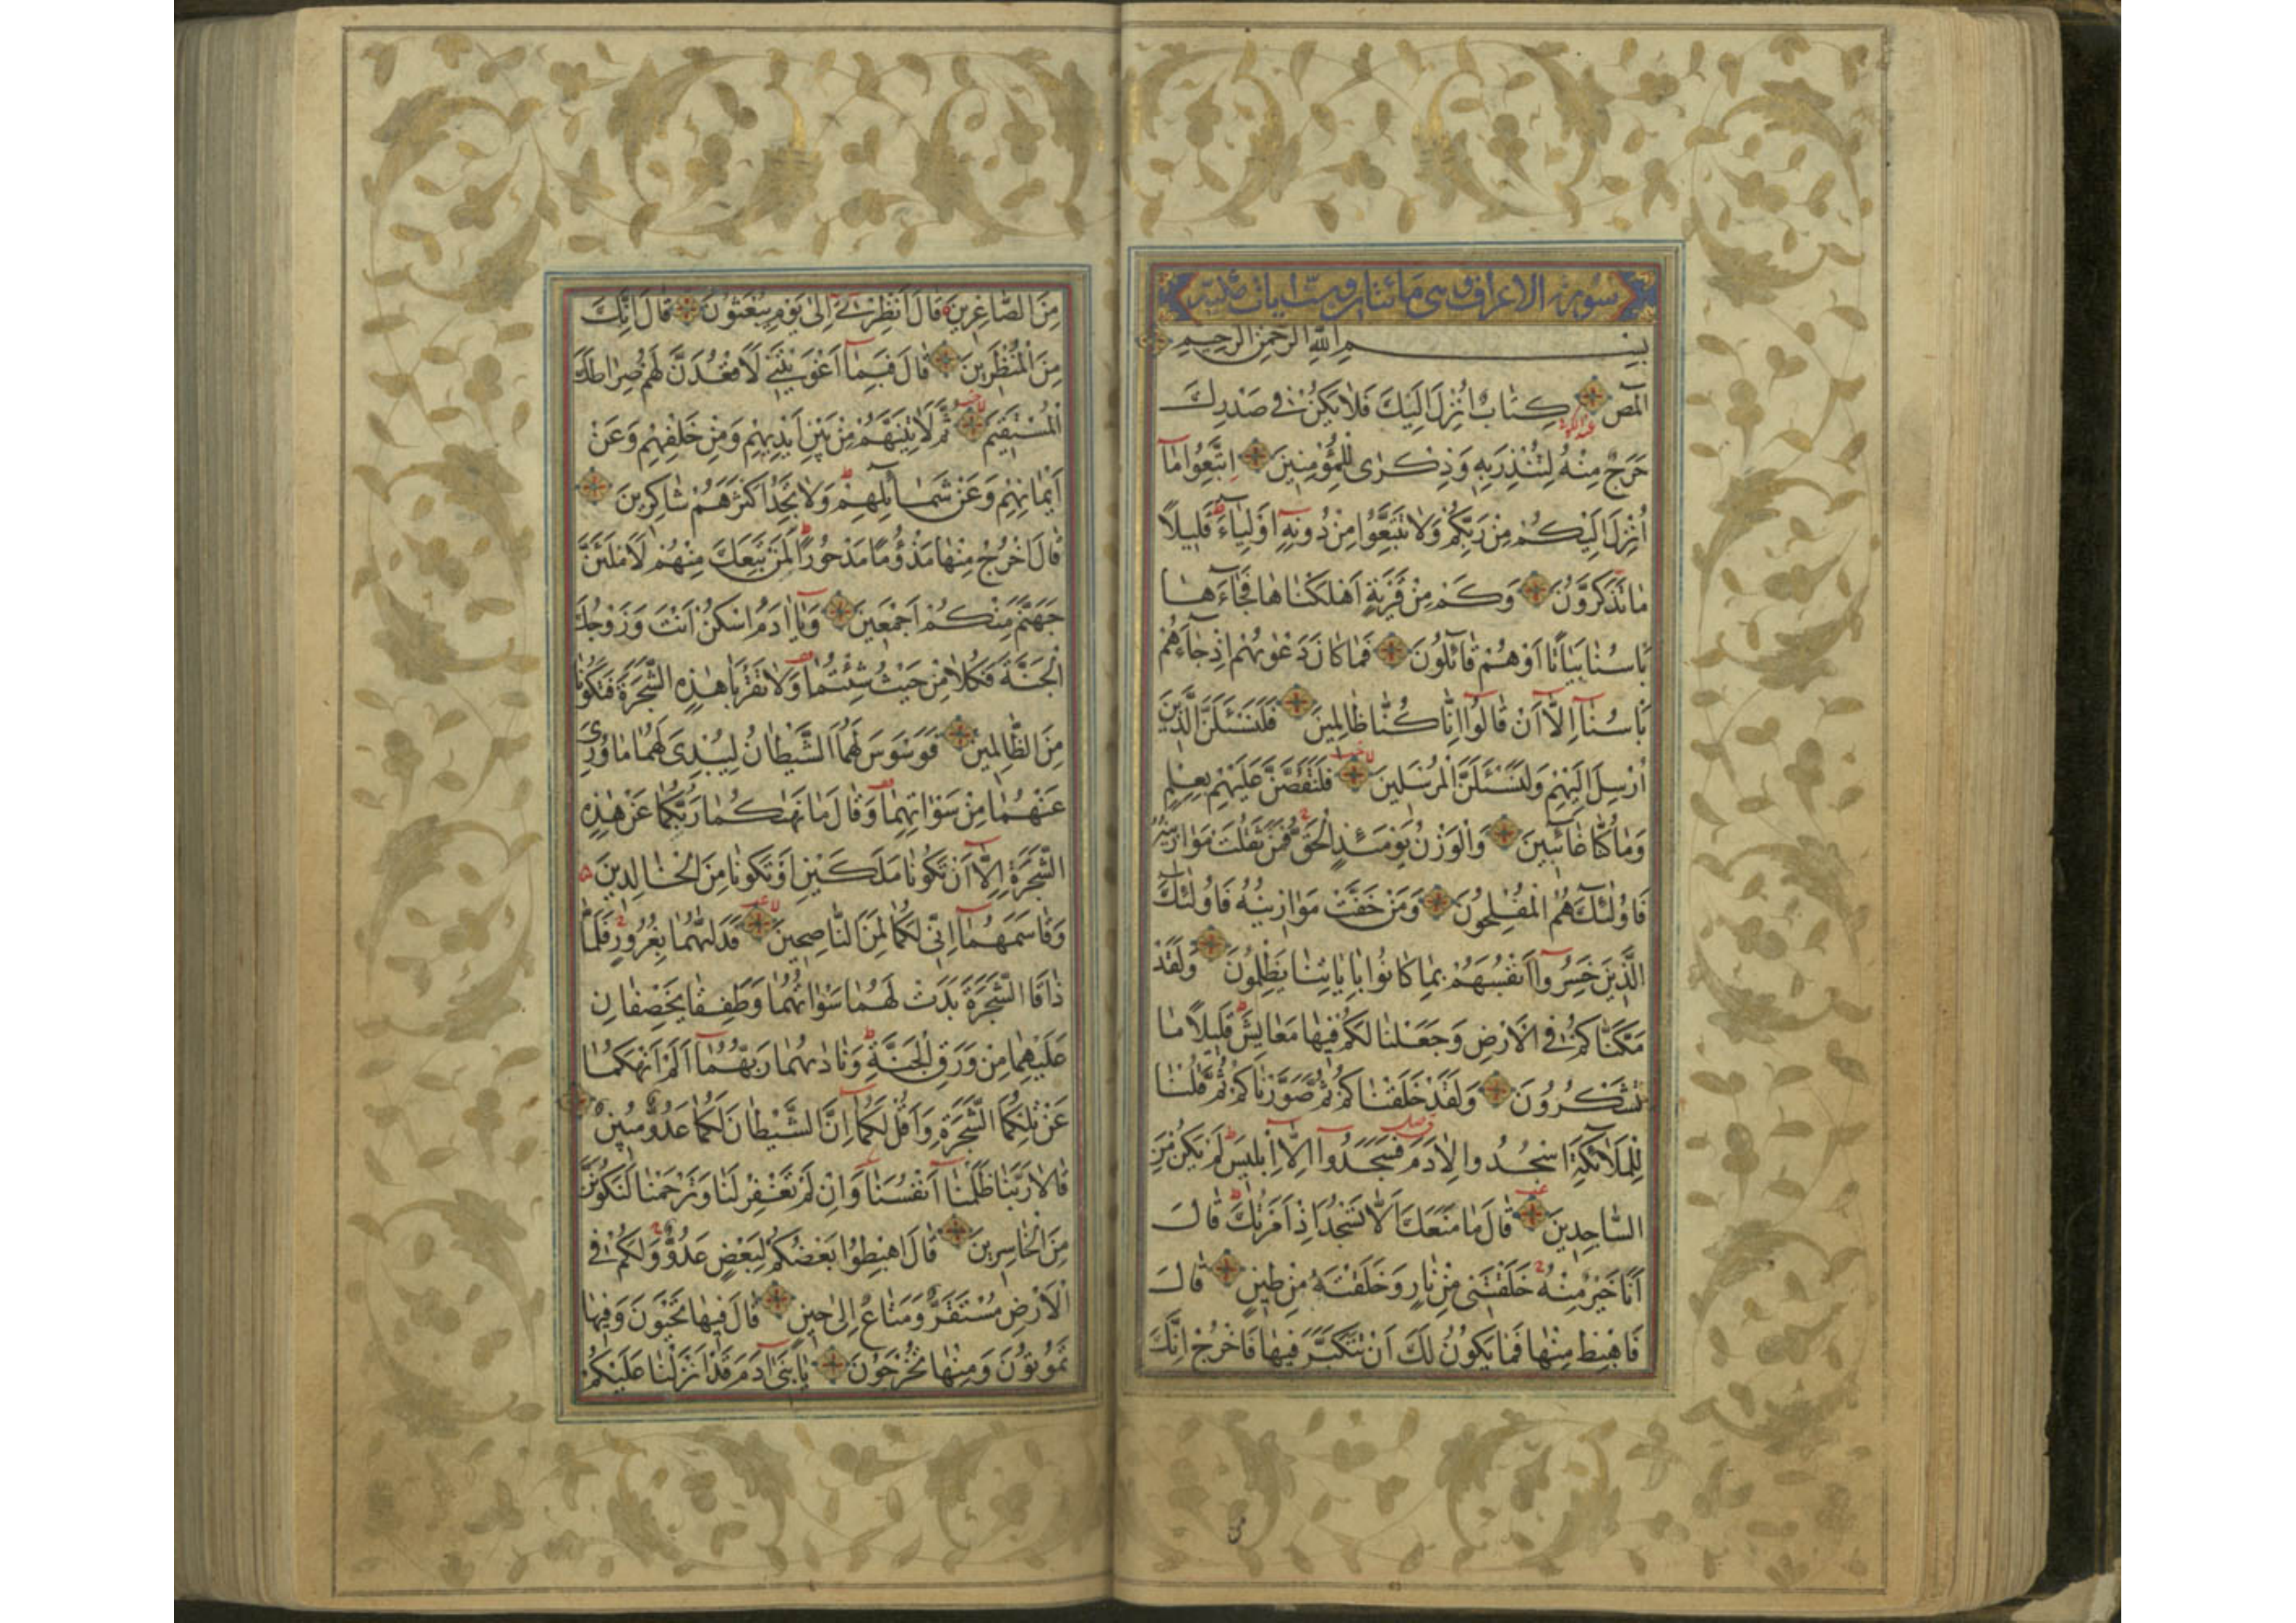 سورة الاعراف وهى مائتان وست ايات مكية
بِسْمِ اللهِ الرَّحْمٰنِ الرَّحِيمِ
الٓمٓصٓ كِتَابٌ اُنْزِلَ اِلَيْكَ فَلَا يَكُنْ فِي صَدْرِكَ
حَرَجٌ مِنْهُ لِتُنْذِرَ بِهِ وَذِكْرٰى لِلْمُؤْمِنِينَ اِتَّبِعُوا مَآ
اُنْزِلَ اِلَيْكُمْ مِنْ رَبِّكُمْ وَلَا تَتَّبِعُوا مِنْ دُونِهِ اَوْلِيَآءَ ط قَلِيلًا
مَا تَذَكَّرُونَ وَكَمْ مِنْ قَرْيَةٍ اَهْلَكْنَاهَا فَجَآءَهَا
بَاْسُنَا بَيَاتًا اَوْ هُمْ قَآئِلُونَ فَمَا كَانَ دَعْوٰيهُمْ اِذْ جَآءَهُمْ
بَاْسُنَآ اِلَّآ اَنْ قَالُوٓا اِنَّا كُنَّا ظَالِمِينَ فَلَنَسْئَلَنَّ الَّذِينَ
اُرْسِلَ اِلَيْهِمْ وَلَنَسْئَلَنَّ الْمُرْسَلِينَ لا فَلَنَقُصَّنَّ عَلَيْهِمْ بِعِلْمٍ
وَمَا كُنَّا غَآئِبِينَ وَالْوَزْنُ يَوْمَئِذٍ الْحَقُّ فَمَنْ ثَقُلَتْ مَوَازِينُهُ
فَاُولٰٓئِكَ هُمُ الْمُفْلِحُونَ وَمَنْ خَفَّتْ مَوَازِينُهُ فَاُولٰٓئِكَ
الَّذِينَ خَسِرُوٓا اَنْفُسَهُمْ بِمَا كَانُوا بِاٰيَاتِنَا يَظْلِمُونَ وَلَقَدْ
مَكَّنَّاكُمْ فِي الْاَرْضِ وَجَعَلْنَا لَكُمْ فِيهَا مَعَايِشَ ط قَلِيلًا مَا
تَشْكُرُونَ وَلَقَدْ خَلَقْنَاكُمْ ثُمَّ صَوَّرْنَاكُمْ ثُمَّ قُلْنَا
لِلْمَلٰٓئِكَةِ اسْجُدُوا لِاٰدَمَ فَسَجَدُوٓا اِلَّآ اِبْلِيسَ ط لَمْ يَكُنْ مِنَ
السَّاجِدِينَ قَالَ مَا مَنَعَكَ اَلَّا تَسْجُدَ اِذْ اَمَرْتُكَ ط قَالَ
اَنَا خَيْرٌ مِنْهُ خَلَقْتَنِي مِنْ نَارٍ وَخَلَقْتَهُ مِنْ طِينٍ قَالَ
فَاهْبِطْ مِنْهَا فَمَا يَكُونُ لَكَ اَنْ تَتَكَبَّرَ فِيهَا فَاخْرُجْ اِنَّكَ
مِنَ الصَّاغِرِينَ قَالَ اَنْظِرْنِيٓ اِلٰى يَوْمِ يُبْعَثُونَ قَالَ اِنَّكَ
مِنَ الْمُنْظَرِينَ قَالَ فَبِمَآ اَغْوَيْتَنِي لَاَقْعُدَنَّ لَهُمْ صِرَاطَكَ
الْمُسْتَقِيمَ لا ثُمَّ لَاٰتِيَنَّهُمْ مِنْ بَيْنِ اَيْدِيهِمْ وَمِنْ خَلْفِهِمْ وَعَنْ
اَيْمَانِهِمْ وَعَنْ شَمَآئِلِهِمْ ط وَلَا تَجِدُ اَكْثَرَهُمْ شَاكِرِينَ
قَالَ اخْرُجْ مِنْهَا مَذْؤُمًا مَدْحُورًا ط لَمَنْ تَبِعَكَ مِنْهُمْ لَاَمْلَئَنَّ
جَهَنَّمَ مِنْكُمْ اَجْمَعِينَ وَيَآ اٰدَمُ اسْكُنْ اَنْتَ وَزَوْجُكَ
الْجَنَّةَ فَكُلَا مِنْ حَيْثُ شِئْتُمَا وَلَا تَقْرَبَا هٰذِهِ الشَّجَرَةَ فَتَكُونَا
مِنَ الظَّالِمِينَ فَوَسْوَسَ لَهُمَا الشَّيْطَانُ لِيُبْدِيَ لَهُمَا مَا وُرِيَ
عَنْهُمَا مِنْ سَوْاٰتِهِمَا وَقَالَ مَا نَهٰيكُمَا رَبُّكُمَا عَنْ هٰذِهِ
الشَّجَرَةِ اِلَّآ اَنْ تَكُونَا مَلَكَيْنِ اَوْ تَكُونَا مِنَ الْخَالِدِينَ
وَقَاسَمَهُمَآ اِنِّي لَكُمَا لَمِنَ النَّاصِحِينَ لا فَدَلّٰيهُمَا بِغُرُورٍ فَلَمَّا
ذَاقَا الشَّجَرَةَ بَدَتْ لَهُمَا سَوْاٰتُهُمَا وَطَفِقَا يَخْصِفَانِ
عَلَيْهِمَا مِنْ وَرَقِ الْجَنَّةِ ط وَنَادٰيهُمَا رَبُّهُمَآ اَلَمْ اَنْهَكُمَا
عَنْ تِلْكُمَا الشَّجَرَةِ وَاَقُلْ لَكُمَآ اِنَّ الشَّيْطَانَ لَكُمَا عَدُوٌّ مُبِينٌ
قَالَا رَبَّنَا ظَلَمْنَآ اَنْفُسَنَا وَاِنْ لَمْ تَغْفِرْ لَنَا وَتَرْحَمْنَا لَنَكُونَنَّ
مِنَ الْخَاسِرِينَ قَالَ اهْبِطُوا بَعْضُكُمْ لِبَعْضٍ عَدُوٌّ وَلَكُمْ فِي
الْاَرْضِ مُسْتَقَرٌّ وَمَتَاعٌ اِلٰى حِينٍ قَالَ فِيهَا تَحْيَوْنَ وَفِيهَا
تَمُوتُونَ وَمِنْهَا تُخْرَجُونَ يَا بَنِيٓ اٰدَمَ قَدْ اَنْزَلْنَا عَلَيْكُمْ